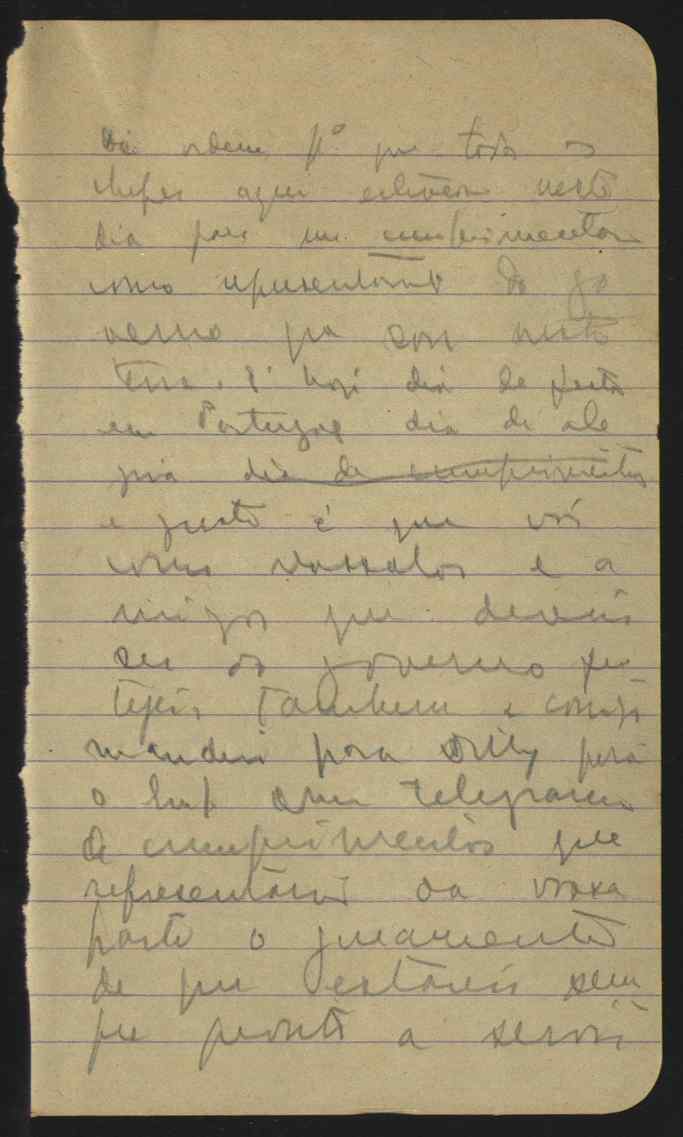 Dei ordem pª que todos os
chefes aqui estivessem neste
dia para me cumprimentar
como representante do go
verno que sou nesta
terra. É hoje dia de festa
em Portugal dia de ale
gria dia de cumprimentos
e justo é que vós
como vassalos e a
migos que deveis
ser do governo fes
tejeis tambem e
mandeis para Dilly para
o um telegrama
de cumprimentos que
representará da vossa
parte o juramento
de que estareis sem
pre prontos a servir